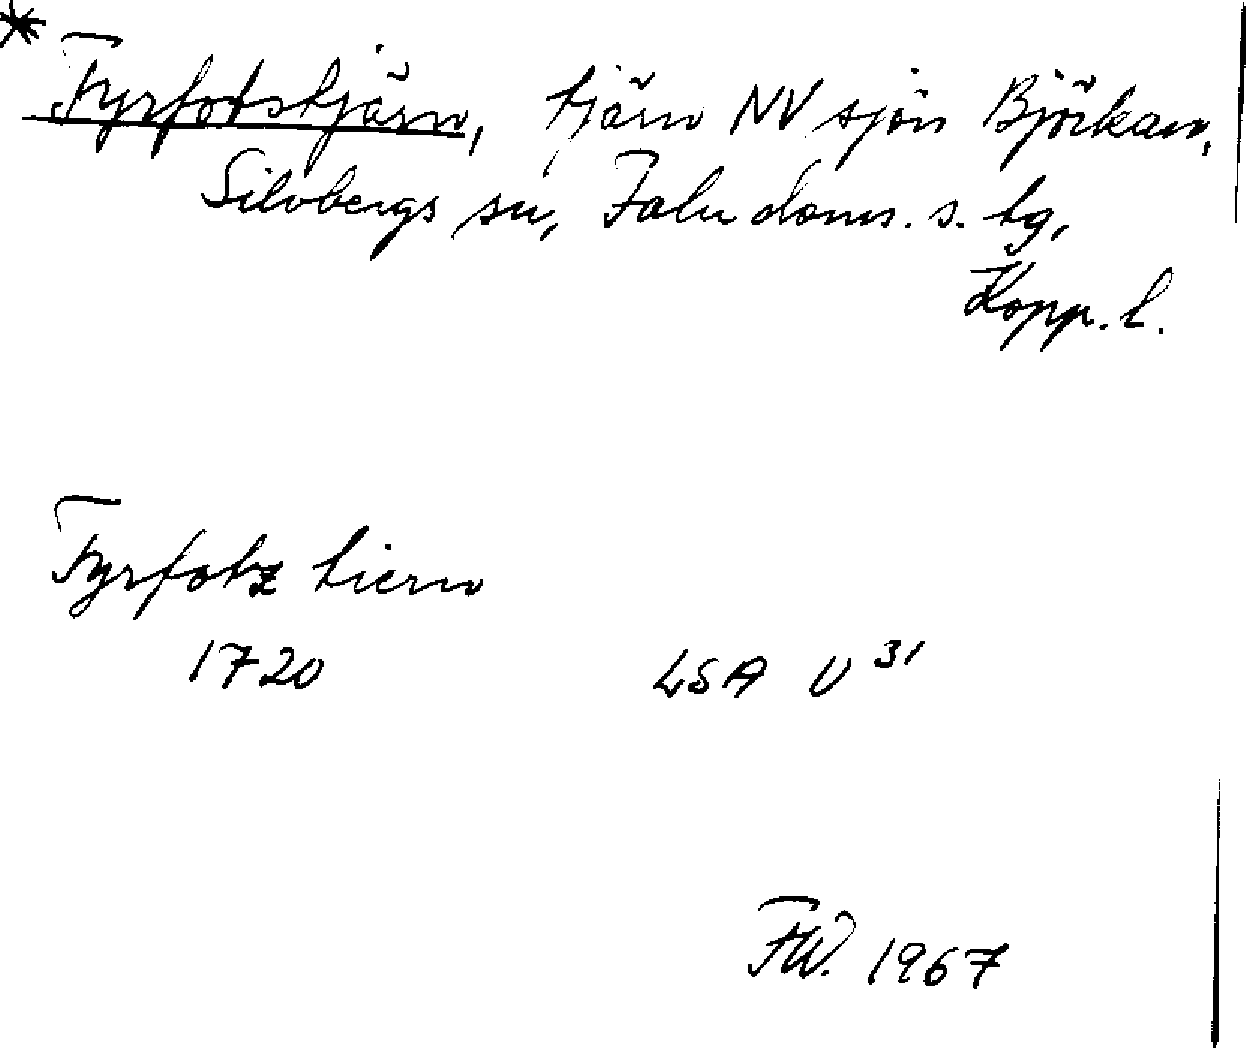 * Fyrfotstjärn, tjärn NV sjön Björkan,
Silvbergs sn, Falu doms. s. tg,
Kopp. l.
Fyrfotz tiern
1720 LSA U 31
FW. 1967